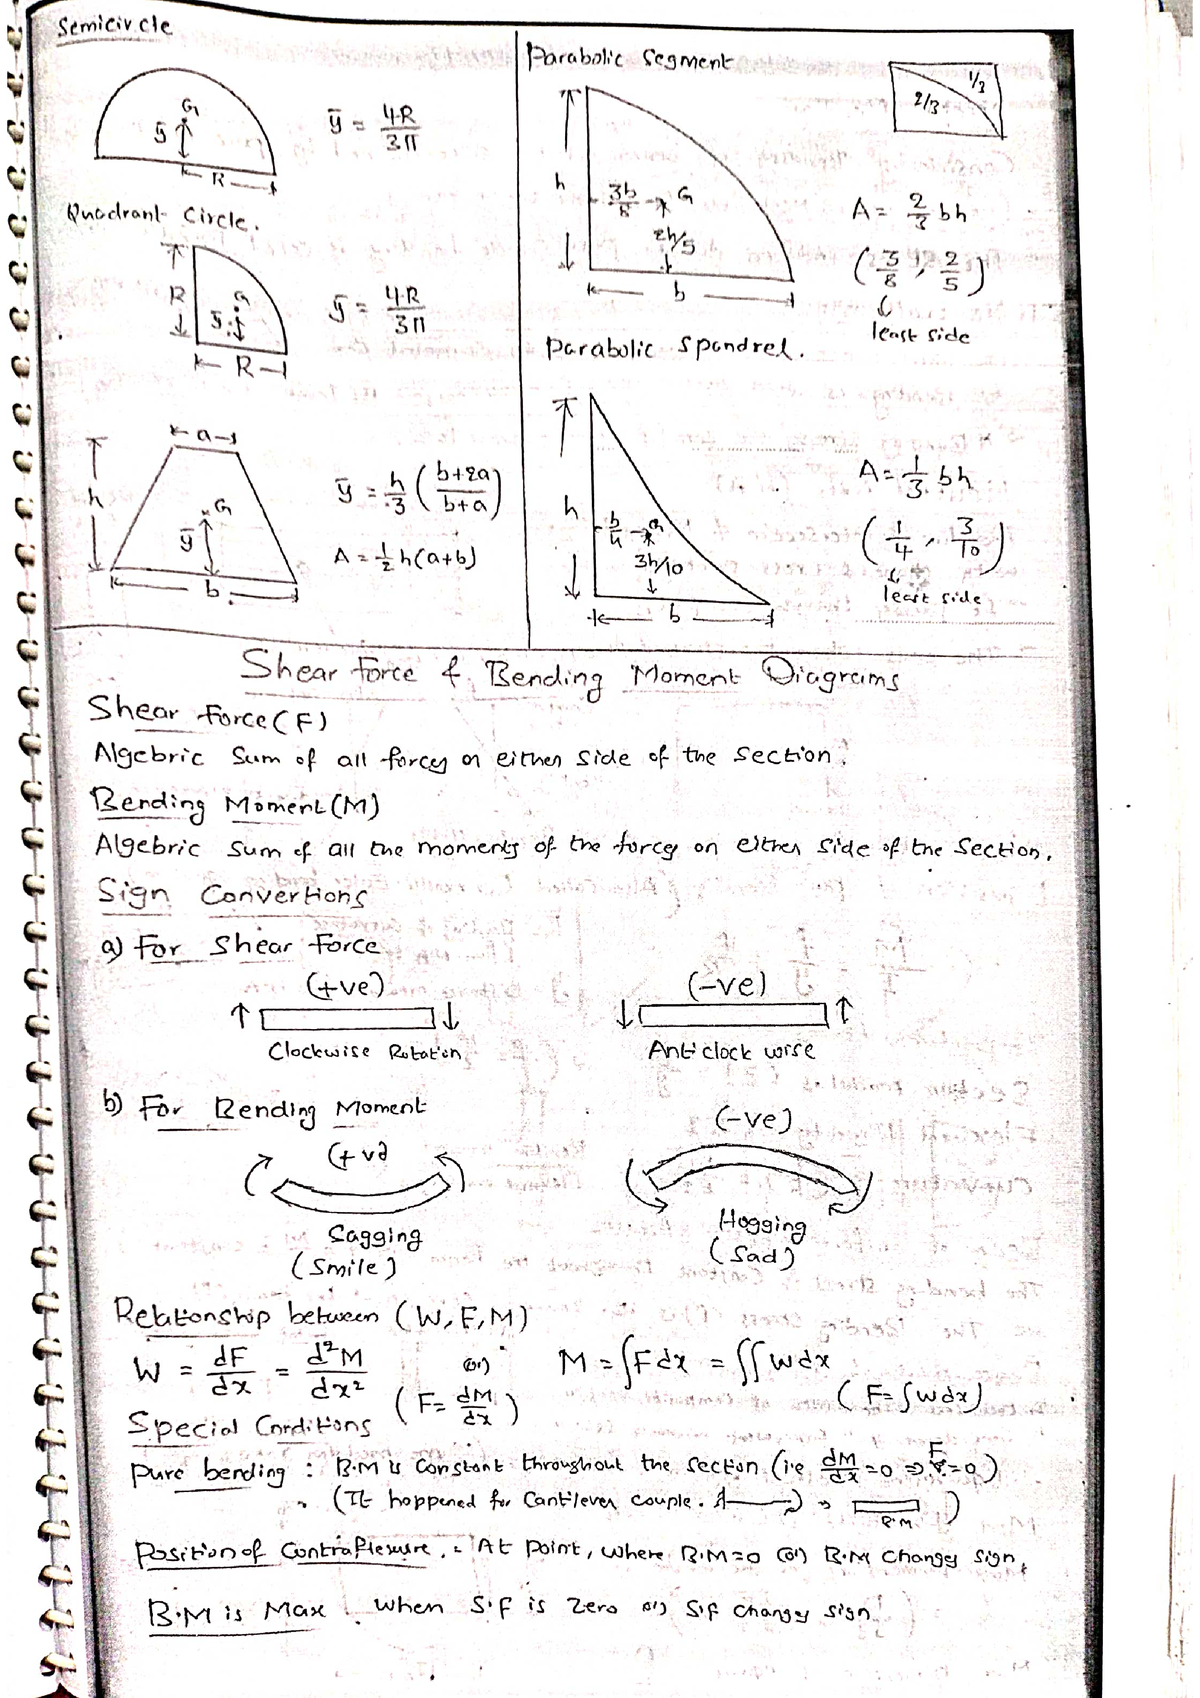 Semicircle
G
ȳ
R
ȳ = 4R/3π
Quadrant Circle.
R
G
ȳ
R
ȳ = 4R/3π
a
h
G
ȳ
b
ȳ = h/3 (b+2a/b+a)
A = 1/2 h(a+b)
Parabolic Segment
1/3
2/3
h
3b/8
G
2h/5
b
A = 2/3 bh
(3/8, 2/5)
least side
Parabolic Spandrel.
h
b/4
G
3h/10
b
A = 1/3 bh
(1/4, 3/10)
least side
Shear Force & Bending Moment Diagrams
Shear Force (F)
Algebric Sum of all forces on either side of the section.
Bending Moment (M)
Algebric sum of all the moments of the forces on either side of the section.
Sign Convertions
a) For Shear Force
(+ve)
(-ve)
↑ ↓
↓ ↑
Clockwise Rotation
Anticlock wise
b) For Bending Moment
(+ve
(-ve)
Sagging
(Smile)
Hogging
(Sad)
Relationship between (W, F, M)
W = dF/dx = d²M/dx² (or) M = ∫Fdx = ∫∫wdx
(F = dM/dx) (F = ∫wdx)
Special Conditions
Pure bending : B.M is Constant throughout the section (i.e dM/dx = 0 ⇒ F = 0)
(It happened for Cantilever couple. ⇒ B.M )
Position of Contraflexure. : At point, where B.M = 0 (or) B.M changes sign,
B.M is Max when S.F is zero or) S.F changes sign